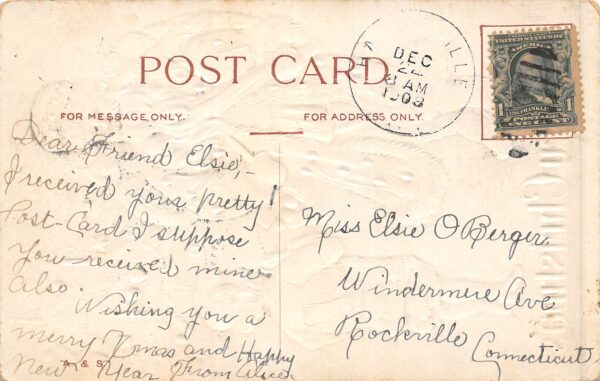 POST CARD.
FOR MESSAGE ONLY.
FOR ADDRESS ONLY.
VILLE
DEC
22
8 AM
1908
UNITED STATES OF
AMERICA
FRANKLIN
1
1
POSTAGE
Dear Friend Elsie,-
I received your pretty!
Post-Card I suppose
you received mine
also.
Wishing you a
merry Xmas and Happy
New Year From Alice.
A & S
Miss Elsie O Berger
Windermere Ave
Rockville
Connecticut